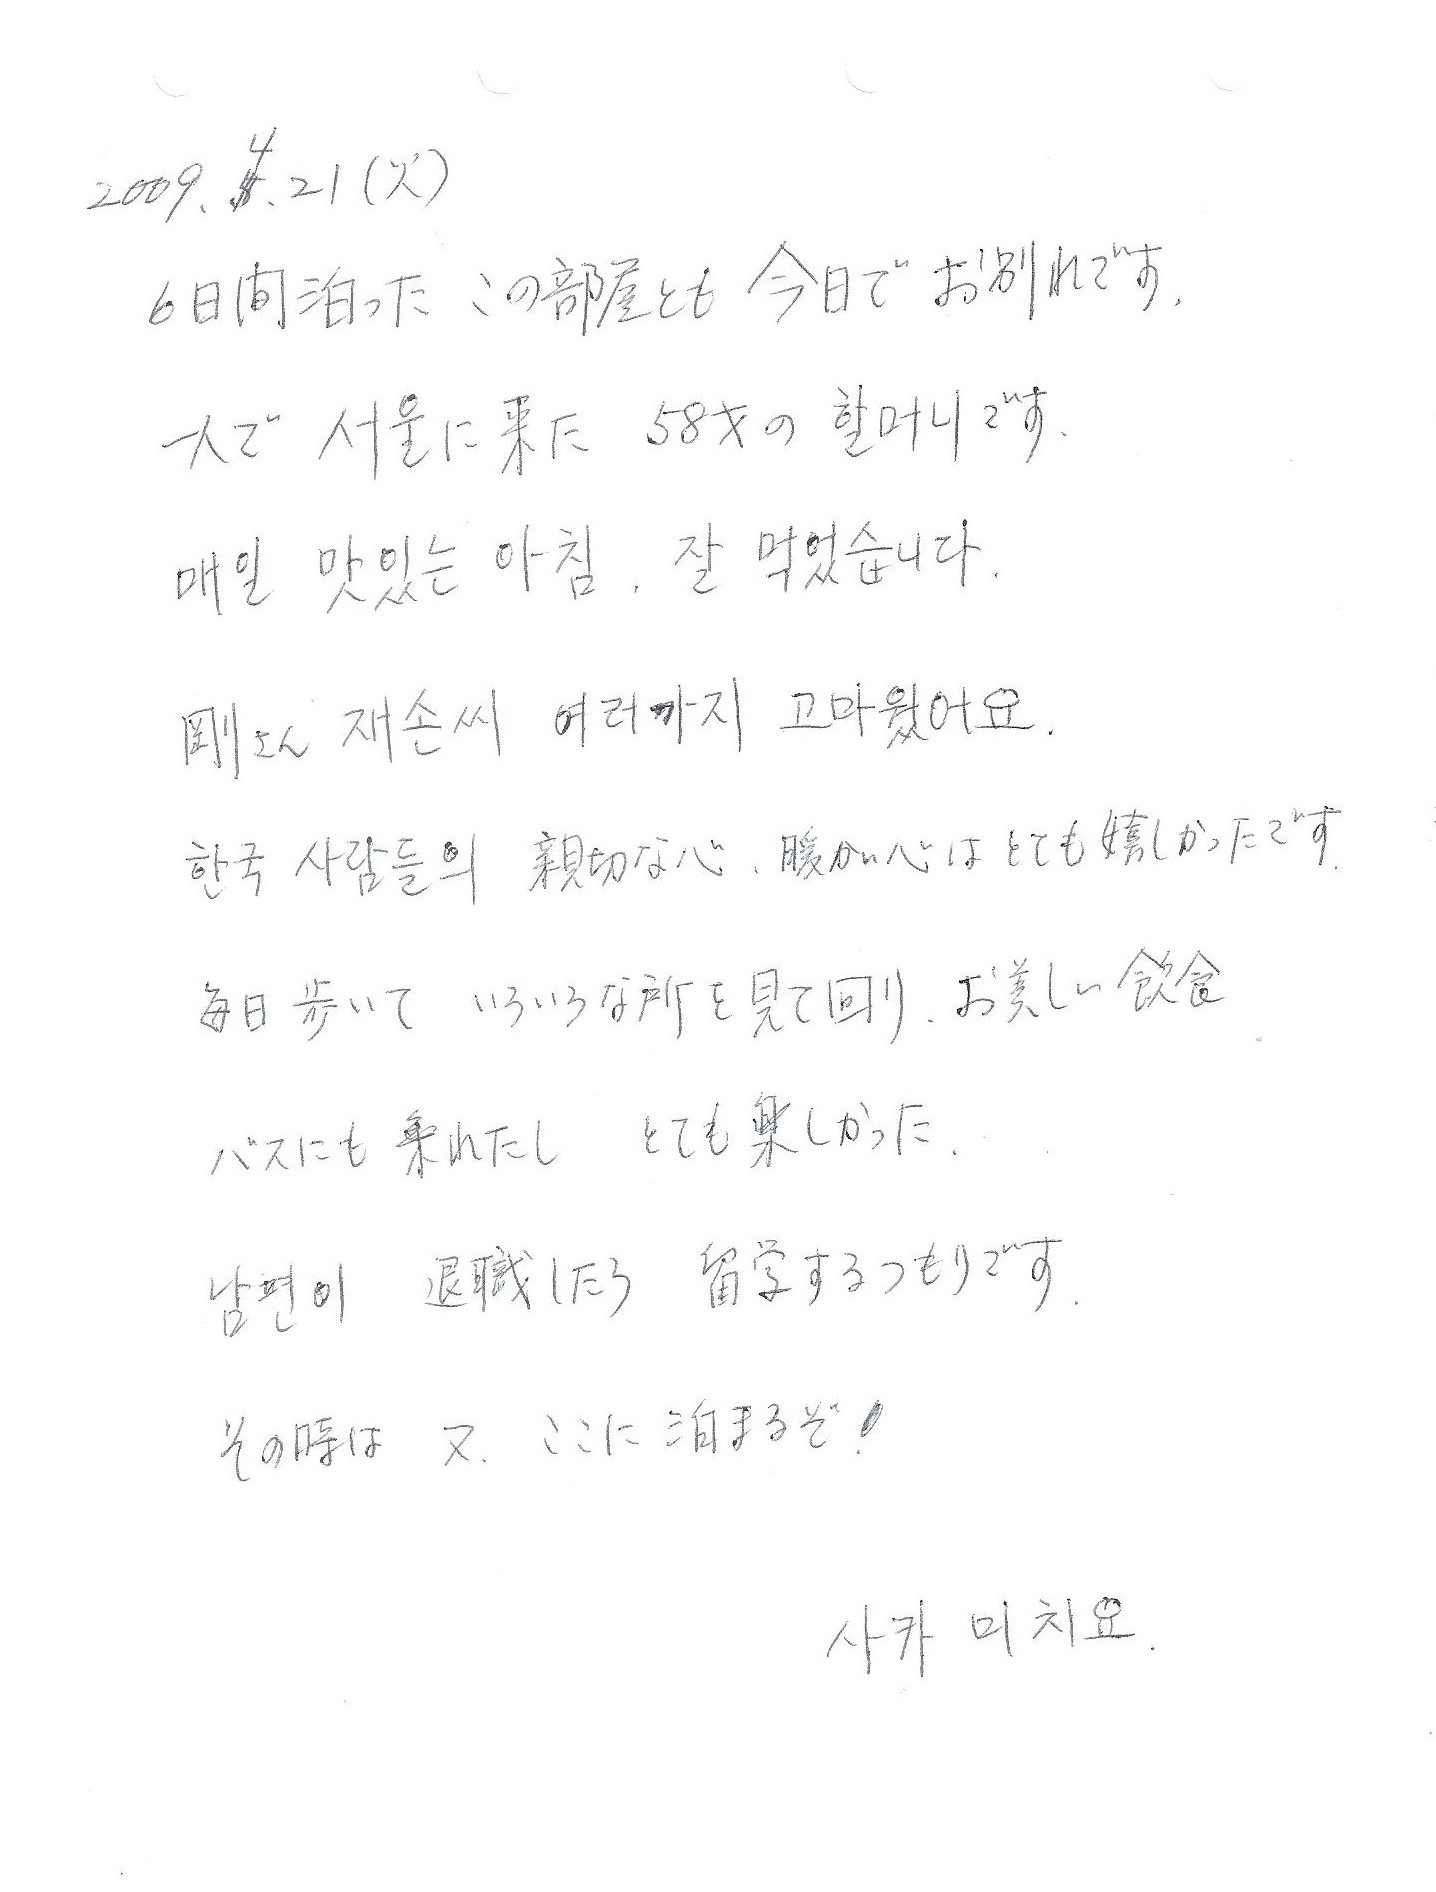 2009. 4. 21 (火)
6日間泊った この部屋とも 今日で お別れです.
一人で 서울に来た 58才の 할머니です.
매일 맛있는 아침. 잘 먹었습니다.
剛さん 재손씨 여러까지 고마웠어요.
한국 사람들의 親切な心、暖かい心は とても嬉しかったです.
毎日 歩いて いろいろな所を見て回り、お美しい飲食
バスにも 乗れたし とても楽しかった.
남편이 退職したら 留学するつもりです.
その時は 又、ここに 泊まるぞ!
사카 미치요.